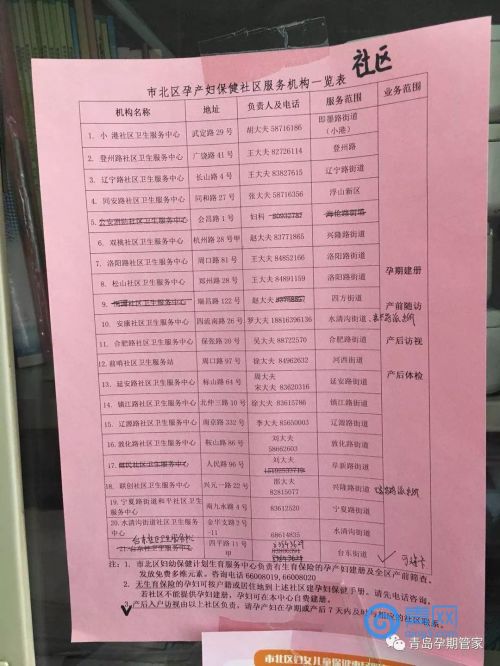 社区
市北区孕产妇保健社区服务机构一览表
机构名称 地址 负责人及电话 服务范围 业务范围
1. 小港社区卫生服务中心 武定路 29 号 胡大夫 58716186 即墨路街道（小港）
2. 登州路社区卫生服务中心 广饶路 41 号 王大夫 82726114 登州路
3. 辽宁路社区卫生服务中心 长山路 4 号 王大夫 83827615 辽宁路街道
4. 同安路社区卫生服务中心 同和路 27 号 张大夫 58716356 浮山新区
5. 公安消防社区卫生服务中心 会昌路 1 号 妇科 80932787 海伦路街道
6. 双桃社区卫生服务中心 杭州路 28 号甲 赵大夫 83771865 兴隆路街道
7. 洛阳路社区卫生服务中心 周口路 81 号 王大夫 84852166 洛阳路街道
8. 松山社区卫生服务中心 郑州路 28 号 王大夫 84891159 洛阳路街道
9. 社区卫生服务中心 瑞昌路 122 号 赵大夫 四方街道
10. 安康社区卫生服务中心 四流南路 26 号 罗大夫 18816396136 水清沟街道
11. 合肥路社区卫生服务中心 保张路 20 号 吴大夫 88722570 合肥路街道
12. 前哨社区卫生服务站 周口路 97 号 徐大夫 84962632 河西街道
13. 延安路社区卫生服务中心 标山路 64 号 周大夫
宋大夫 83620316 延安路街道
14. 镇江路社区卫生服务中心 北仲三路 10 号 徐大夫 83615786 镇江路街道
15. 辽源路社区卫生服务中心 南京路 332 号 李大夫 85650003 辽源路街道
16. 敦化路社区卫生服务中心 鞍山路 86 号 刘大夫
58662603 敦化路街道
17. 社区卫生服务中心 人民路 96 号 刘大夫
阜新路街道
18. 联创社区卫生服务中心 兴元一路 22 号 邵大夫
82815077 兴隆路街道
19. 宁夏路街道和平社区卫生服务中心 南九水路 4 号 83612520 宁夏路街道
20. 水清沟街道社区卫生服务中心 金华支路 2 号
-11 68614835 水清沟街道
台东社区卫生服务中心
21. 四平路 11 号甲 台东街道
孕期建册
产前随访
产后访视
产后体检
注：1. 市北区妇幼保健计划生育服务中心负责有生育保险的孕产妇建册及全区产前筛查。
发放免费多维元素。咨询电话 66008019，66008020
2. 无生育保险的孕妇可按户籍或居住地到上述社区建孕妇保健手册。请先电话咨询。
若社区不能提供孕妇建册，孕妇可在本中心自费建册。
3. 产后入户访视由以上社区负责，请孕产妇在孕期或产后 7 天内及时与相应的社区联系。
青网
青岛孕期管家
市北区妇女儿童保健